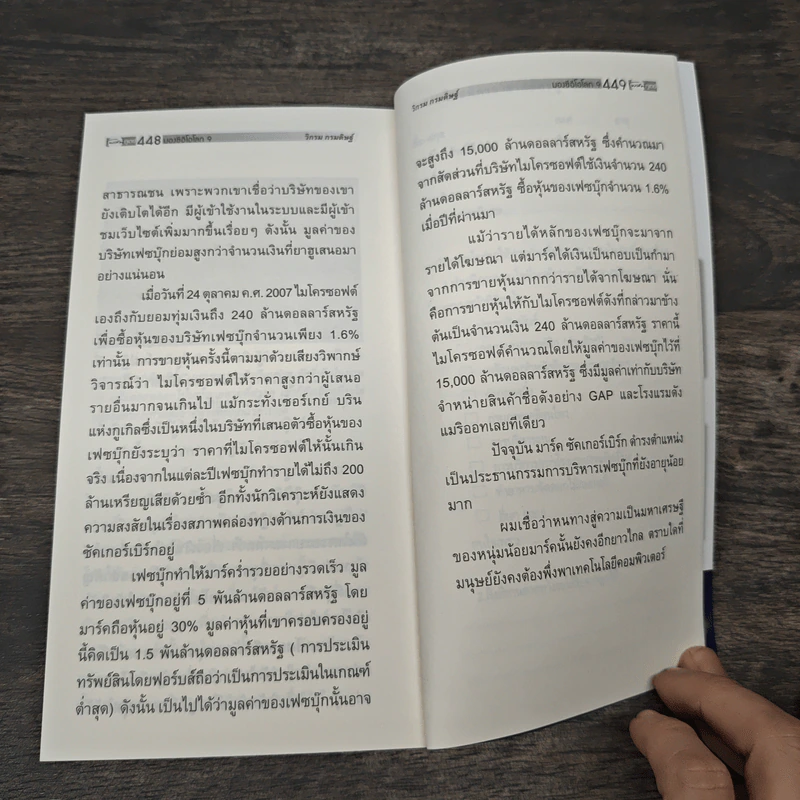 448 มองซีอีโอโลก ๑ วิกรม กรมดิษฐ์
สาธารณชน เพราะพวกเขาเชื่อว่าบริษัทของเขา
ยังเติบโตได้อีก มีผู้เข้าใช้งานในระบบและมีผู้เข้า
ชมเว็บไซต์เพิ่มมากขึ้นเรื่อยๆ ดังนั้น มูลค่าของ
บริษัทเฟซบุ๊กย่อมสูงกว่าจำนวนเงินที่ยาฮูเสนอมา
อย่างแน่นอน
เมื่อวันที่ 24 ตุลาคม ค.ศ. 2007 ไมโครซอฟต์
เองถึงกับยอมทุ่มเงินถึง 240 ล้านดอลลาร์สหรัฐ
เพื่อซื้อหุ้นของบริษัทเฟซบุ๊กจำนวนเพียง 1.6%
เท่านั้น การขายหุ้นครั้งนี้ตามมาด้วยเสียงวิพากษ์
วิจารณ์ว่า ไมโครซอฟต์ให้ราคาสูงกว่าผู้เสนอ
รายอื่นมากจนเกินไป แม้กระทั่งเซอร์เกย์ บริน
แห่งกูเกิลซึ่งเป็นหนึ่งในบริษัทที่เสนอตัวซื้อหุ้นของ
เฟซบุ๊กยังระบุว่า ราคาที่ไมโครซอฟต์ให้นั้นเกิน
จริง เนื่องจากในแต่ละปีเฟซบุ๊กทำรายได้ไม่ถึง 200
ล้านเหรียญเสียด้วยซ้ำ อีกทั้งนักวิเคราะห์ยังแสดง
ความสงสัยในเรื่องสภาพคล่องทางด้านการเงินของ
ซัคเกอร์เบิร์กอยู่
เฟซบุ๊กทำให้มาร์คร่ำรวยอย่างรวดเร็ว มูล
ค่าของเฟซบุ๊กอยู่ที่ 5 พันล้านดอลลาร์สหรัฐ โดย
มาร์คถือหุ้นอยู่ 30% มูลค่าหุ้นที่เขาครอบครองอยู่
นี้คิดเป็น 1.5 พันล้านดอลลาร์สหรัฐ ( การประเมิน
ทรัพย์สินโดยฟอร์บส์ถือว่าเป็นการประเมินในเกณฑ์
ต่ำสุด) ดังนั้น เป็นไปได้ว่ามูลค่าของเฟซบุ๊กนั้นอาจ
วิกรม กรมดิษฐ์ มองซีอีโอโลก ๑ 449
จะสูงถึง 15,000 ล้านดอลลาร์สหรัฐ ซึ่งคำนวณมา
จากสัดส่วนที่บริษัทไมโครซอฟต์ใช้เงินจำนวน 240
ล้านดอลลาร์สหรัฐ ซื้อหุ้นของเฟซบุ๊กจำนวน 1.6%
เมื่อปีที่ผ่านมา
แม้ว่ารายได้หลักของเฟซบุ๊กจะมาจาก
รายได้โฆษณา แต่มาร์คได้เงินเป็นกอบเป็นกำมา
จากการขายหุ้นมากกว่ารายได้จากโฆษณา นั่น
คือการขายหุ้นให้กับไมโครซอฟต์ดังที่กล่าวมาข้าง
ต้นเป็นจำนวนเงิน 240 ล้านดอลลาร์สหรัฐ ราคานี้
ไมโครซอฟต์คำนวณโดยให้มูลค่าของเฟซบุ๊กไว้ที่
15,000 ล้านดอลลาร์สหรัฐ ซึ่งมีมูลค่าเท่ากับบริษัท
จำหน่ายสินค้าชื่อดังอย่าง GAP และโรงแรมดัง
แมริออทเลยทีเดียว
ปัจจุบัน มาร์ค ซัคเกอร์เบิร์ก ดำรงตำแหน่ง
เป็นประธานกรรมการบริหารเฟซบุ๊กที่ยังอายุน้อย
มาก
ผมเชื่อว่าหนทางสู่ความเป็นมหาเศรษฐี
ของหนุ่มน้อยมาร์คนั้นยังคงอีกยาวไกล ตราบใดที่
มนุษย์ยังคงต้องพึ่งพาเทคโนโลยีคอมพิวเตอร์